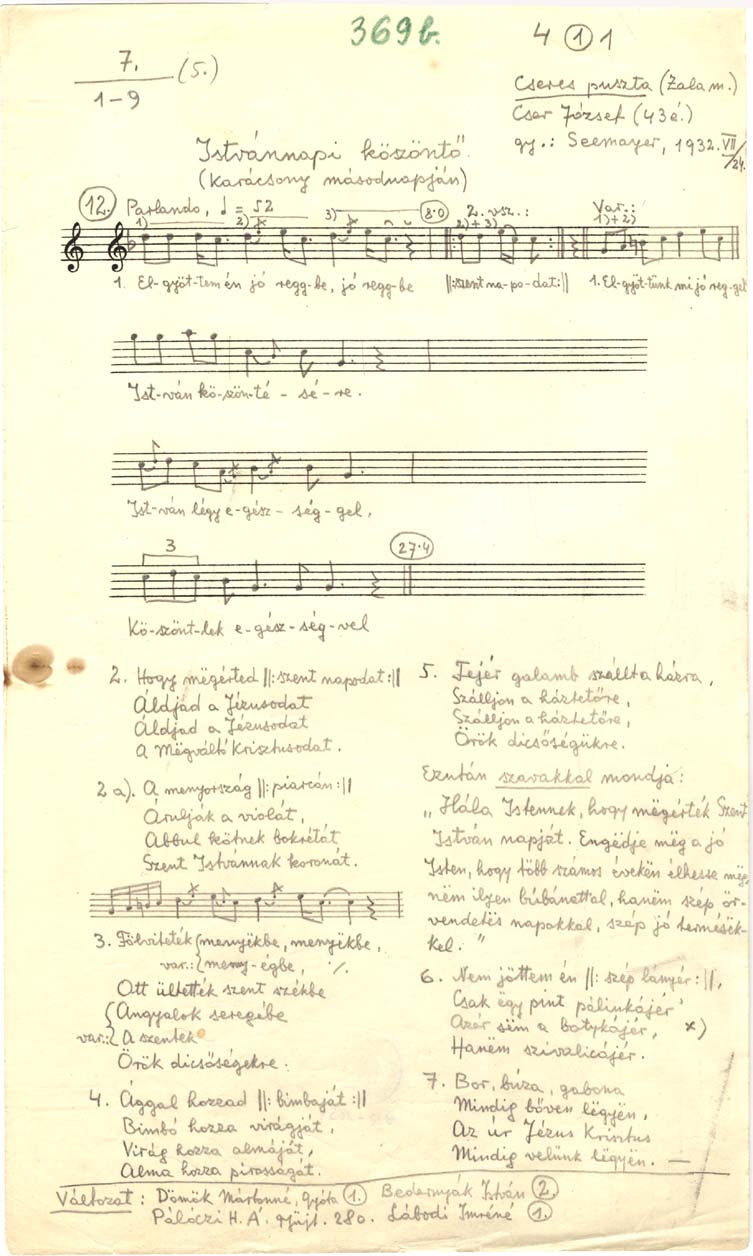 369b.
4 ① 1
7. (5.)
1-9
Cseres puszta (Zala m.)
Cser József (43 é.)
gy.: Seemayer, 1932. VII/24.
Istvánnapi köszöntő.
(Karácsony másodnapján)
12. Parlando, ♩ = 52
1) 2) 3) 8·0 2. vsz.: 2)+3) Var.: 1)+2)
1. El-gyöt-tem én jó regg-be, jó regg-be ||:szent na-po-dat:|| 1. El-gyöt-tünk mi jó reg-gel
Ist-ván kö-szön-té-sé-re.
Ist-ván légy e-gész-ség-gel,
3 27·4
Kö-szönt-lek e-gész-ség-vel
2. Hogy mëgérted ||: szent napodat :||
Áldjad a Jézusodat
Áldjad a Jézusodat
A Mëgváltó Krisztusodat.
2 a). A menyország ||: piarcán :||
Árulják a violát,
Abbul kötnek bokrétát
Szent Istvánnak koronát.
3. Fölviteték (menyëkbe, menyëkbe,
var.: { meny-égbe, ./.
Ott ültették szent székbe
{ Angyalok seregébe
var.: { A szentek
Örök dicsőségekre.
4. Ággal hozzad ||: bimbaját :||
Bimbó hozza virágját,
Virág hozza almáját,
Alma hozza pirosságát.
5. Fejér galamb szállt a házra,
Szálljon a háztetőre,
Szálljon a háztetőre,
Örök dicsőségükre.
Ezután szavakkal mondja:
„Hála Istennek, hogy mëgérték Szent
István napját. Engëdje mëg a jó
Isten, hogy több számos évekën élhesse mëg,
nëm ilyen búbánattal, hanëm szép ör-
vendetës napokkal, szép jó termésëk-
kel."
6. Nem jöttem én ||: szép lanyér :||,
Csak ëgy pint pálinkájér'
Azér sëm a botykájér, x)
Hanëm szivalicájér.
7. Bor, búza, gabona
Mindig bőven lëgyën,
Az úr Jézus Krisztus
Mindig velünk lëgyën. —
Változat: Dömök Mártonné, Gyóta ①. Bedernyák István ②.
Pálóczi H. Á. gyüjt. 280. Lábodi Imréné ①.